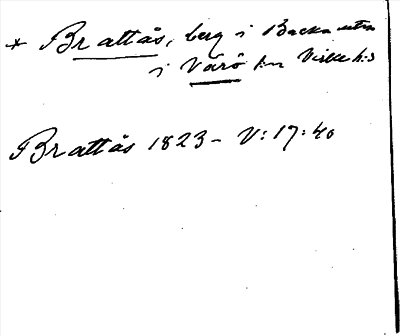 * Brattås, berg i Backa utm
i Värö sn Viske h:d
Brattås 1823 - V:17:40